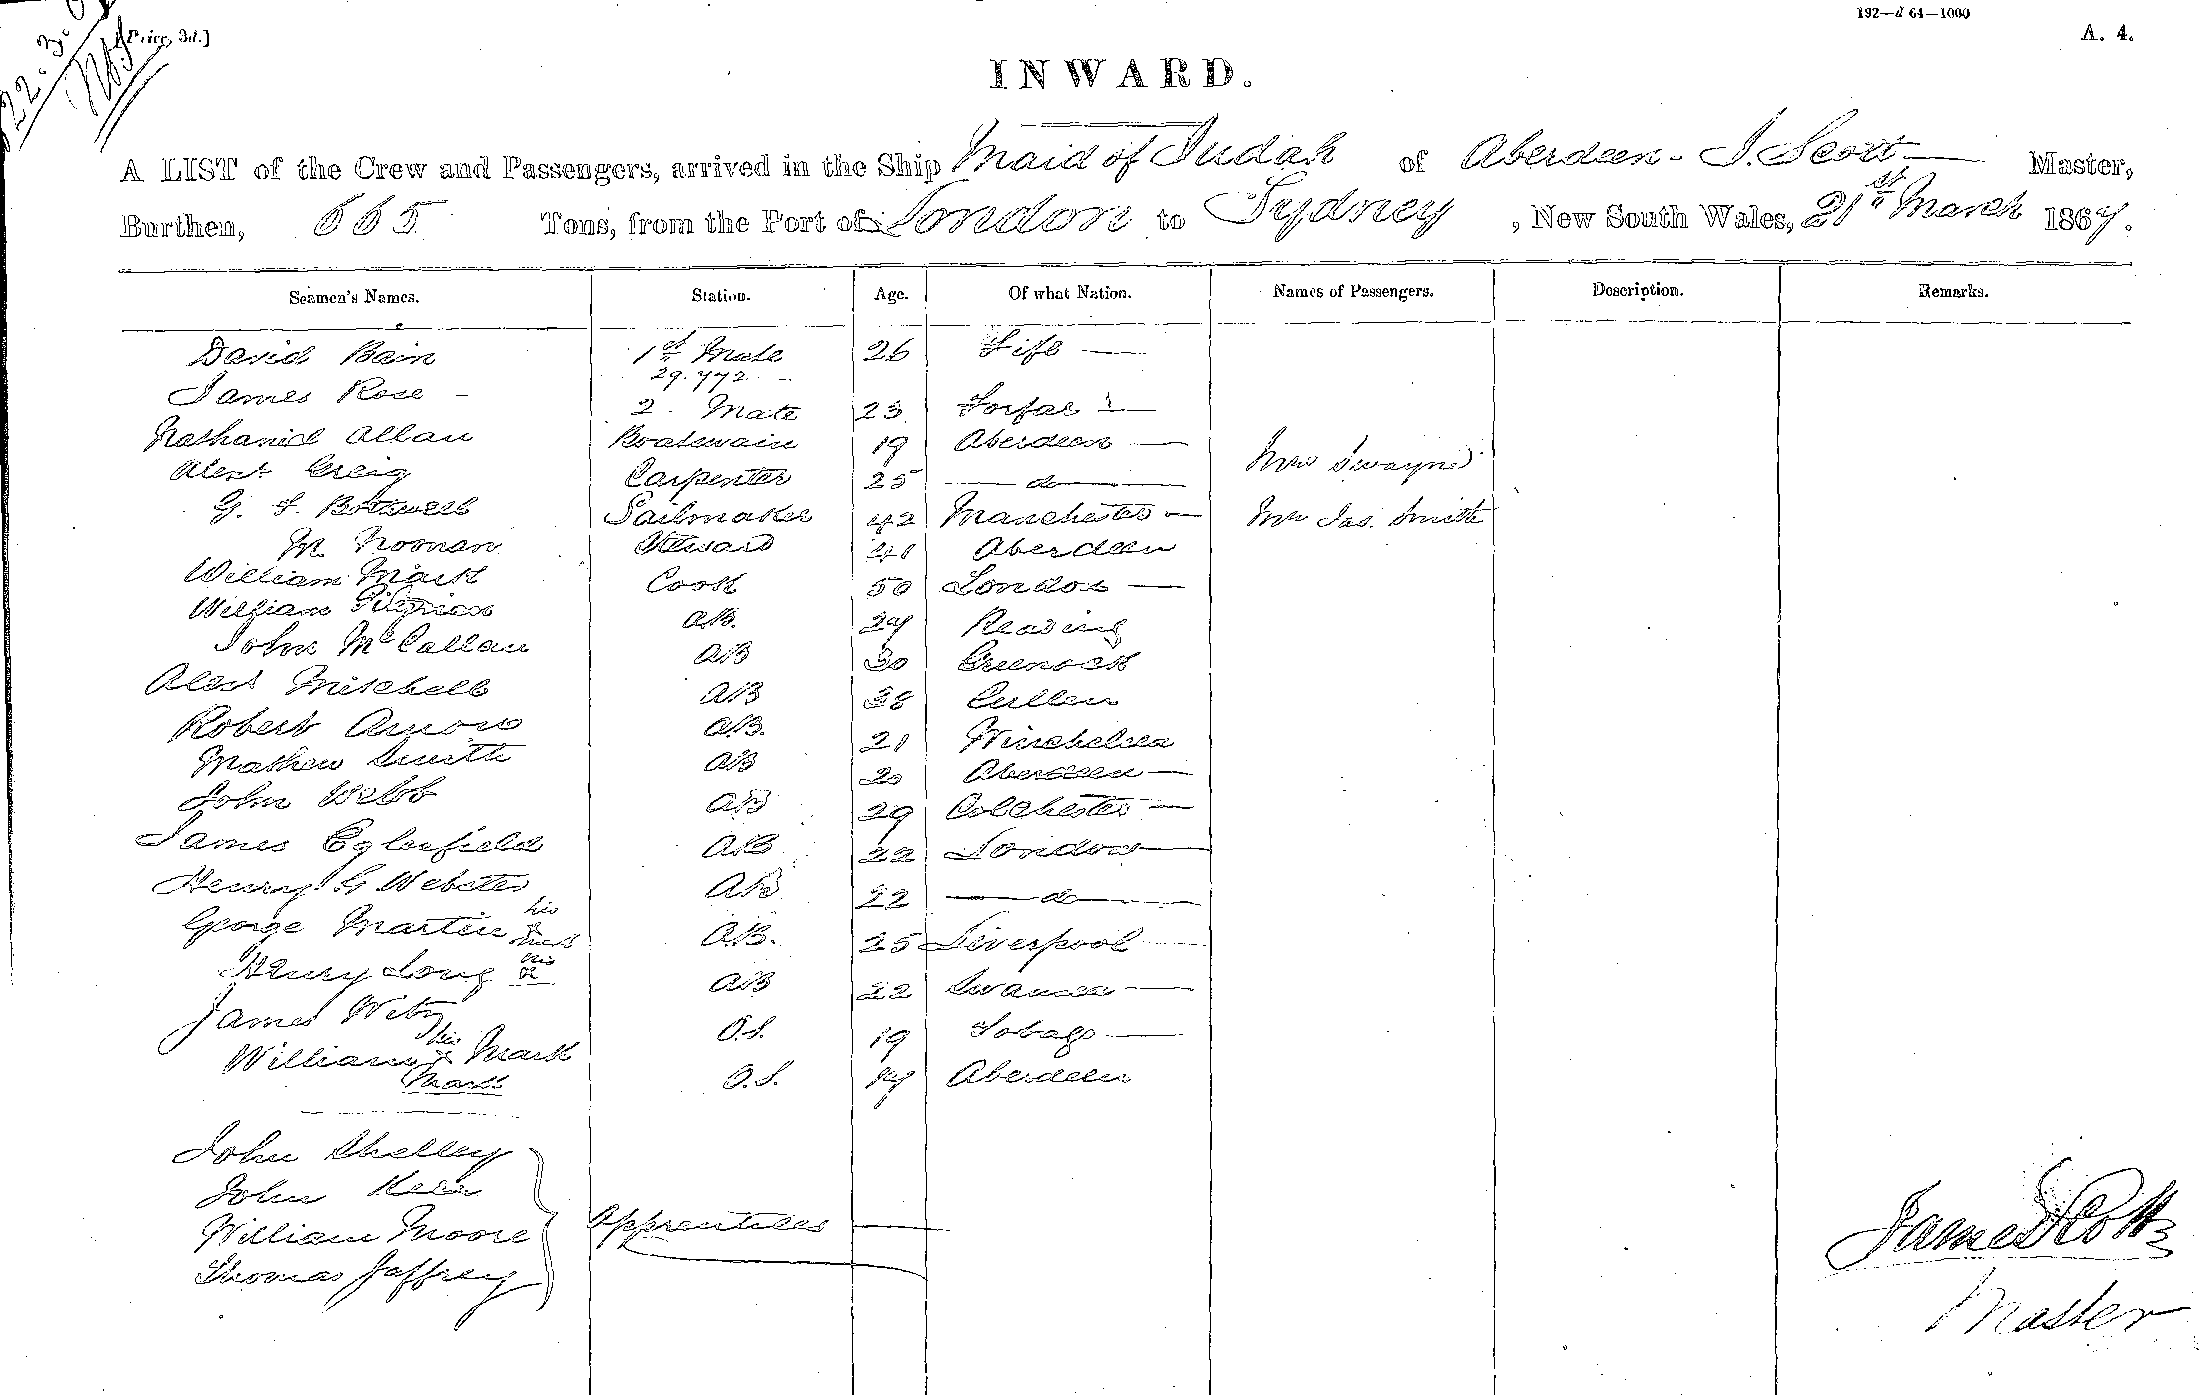 192—d 64—1000
[Price, 3d.]
A. 4.
INWARD.
A LIST of the Crew and Passengers, arrived in the Ship Maid of Judah of Aberdeen - J. Scott Master,
Burthen, 665 Tons, from the Port of London to Sydney, New South Wales, 21st March 1867.
Seamen's Names. Station. Age. Of what Nation. Names of Passengers. Description. Remarks.
David Bain 1st Mate 26 Fife
29.772
James Rose 2. Mate 23 Forfar
Nathaniel Allan Boatswain 19 Aberdeen
Mrs Swayne
Alexr Greig Carpenter 25 do
G. S. Bothwell Sailmaker 42 Manchester Mr Jas. Smith
M. Noonan Steward Aberdeen
William Mark Cook 50 London
William A.B. 27 Reading
John McCallan AB 30 Greenock
Alexr Mitchell AB 38 Cullen
Robert AB. 21 Winchelsea
Mathew Smith AB 20 Aberdeen
John Webb AB 29 Colchester
James Eglesfield AB 22 London
Henry G Webster AB 22 do
his
George Martin x A.B. 25 Liverpool
mark
his
Henry Long x AB 22 Swansea
James O.S. 19 Tobago
his
William x Mark O.S. 17 Aberdeen
Mark
John Shelley
John Kerr
William Moore Apprentices
Thomas Jaffrey
James Scott
Master